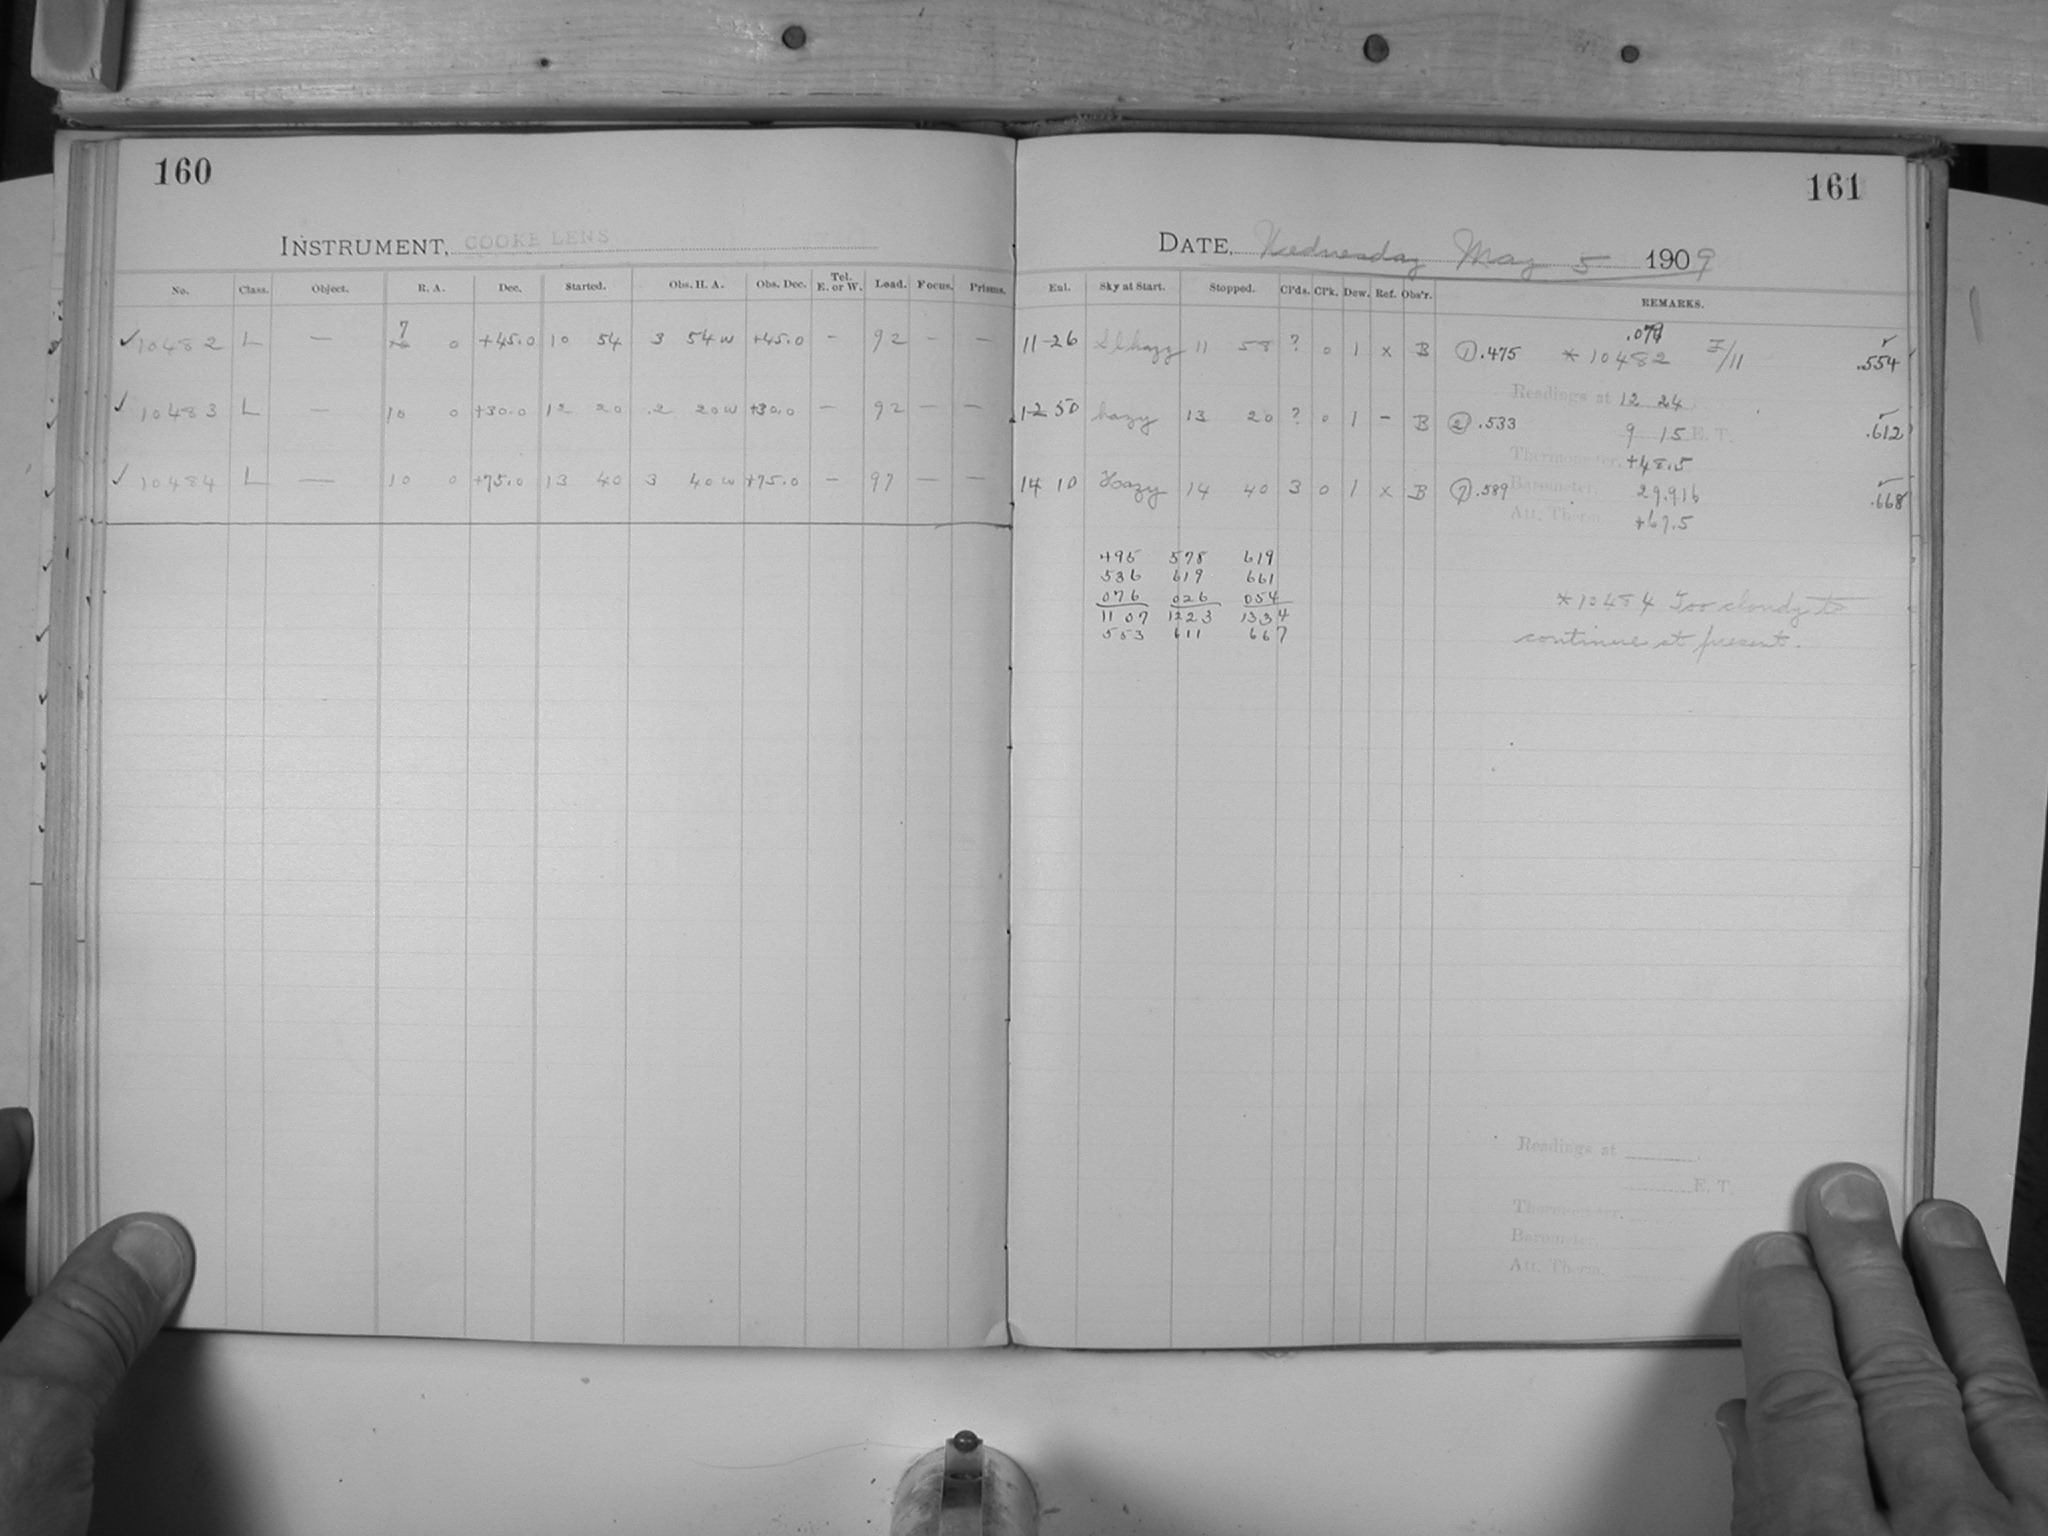 160
INSTRUMENT, COOKE LENS
No. Class. Object. R. A. Dec. Started. Obs. H. A. Obs. Dec. Tel. E. or W. Load. Focus. Prisms.
✓ 10482 L — 7 0 +45.0 10 54 3 54 w +45.0 – 92 – –
✓ 10483 L — 10 0 +30.0 12 20 2 20 w +30.0 – 92 – –
✓ 10484 L — 10 0 +75.0 13 40 3 40 w +75.0 – 97 – –
161
DATE, Wednesday May 5 1909
Sky at Start. Stopped. Cl'ds. Cl'k. Dew. Ref. Obs'r. REMARKS.
11 26 Sl hazy 11 58 ? 0 1 x B ① .475 * 10482 F/11 .554
Readings at 12 24
12 50 hazy 13 20 ? 0 1 – B ② .533 .612
9 15 E. T.
Thermometer, +48.5
14 10 Hazy 14 40 3 0 1 x B ⑦ .589 .668
Barometer, 29.916
Att. Therm. +67.5
495 578 619
536 619 661
076 026 054
1107 1223 1334
553 611 667
* 10484 Too cloudy to
continue at present.
Readings at
E. T.
Thermometer,
Barometer,
Att. Therm.